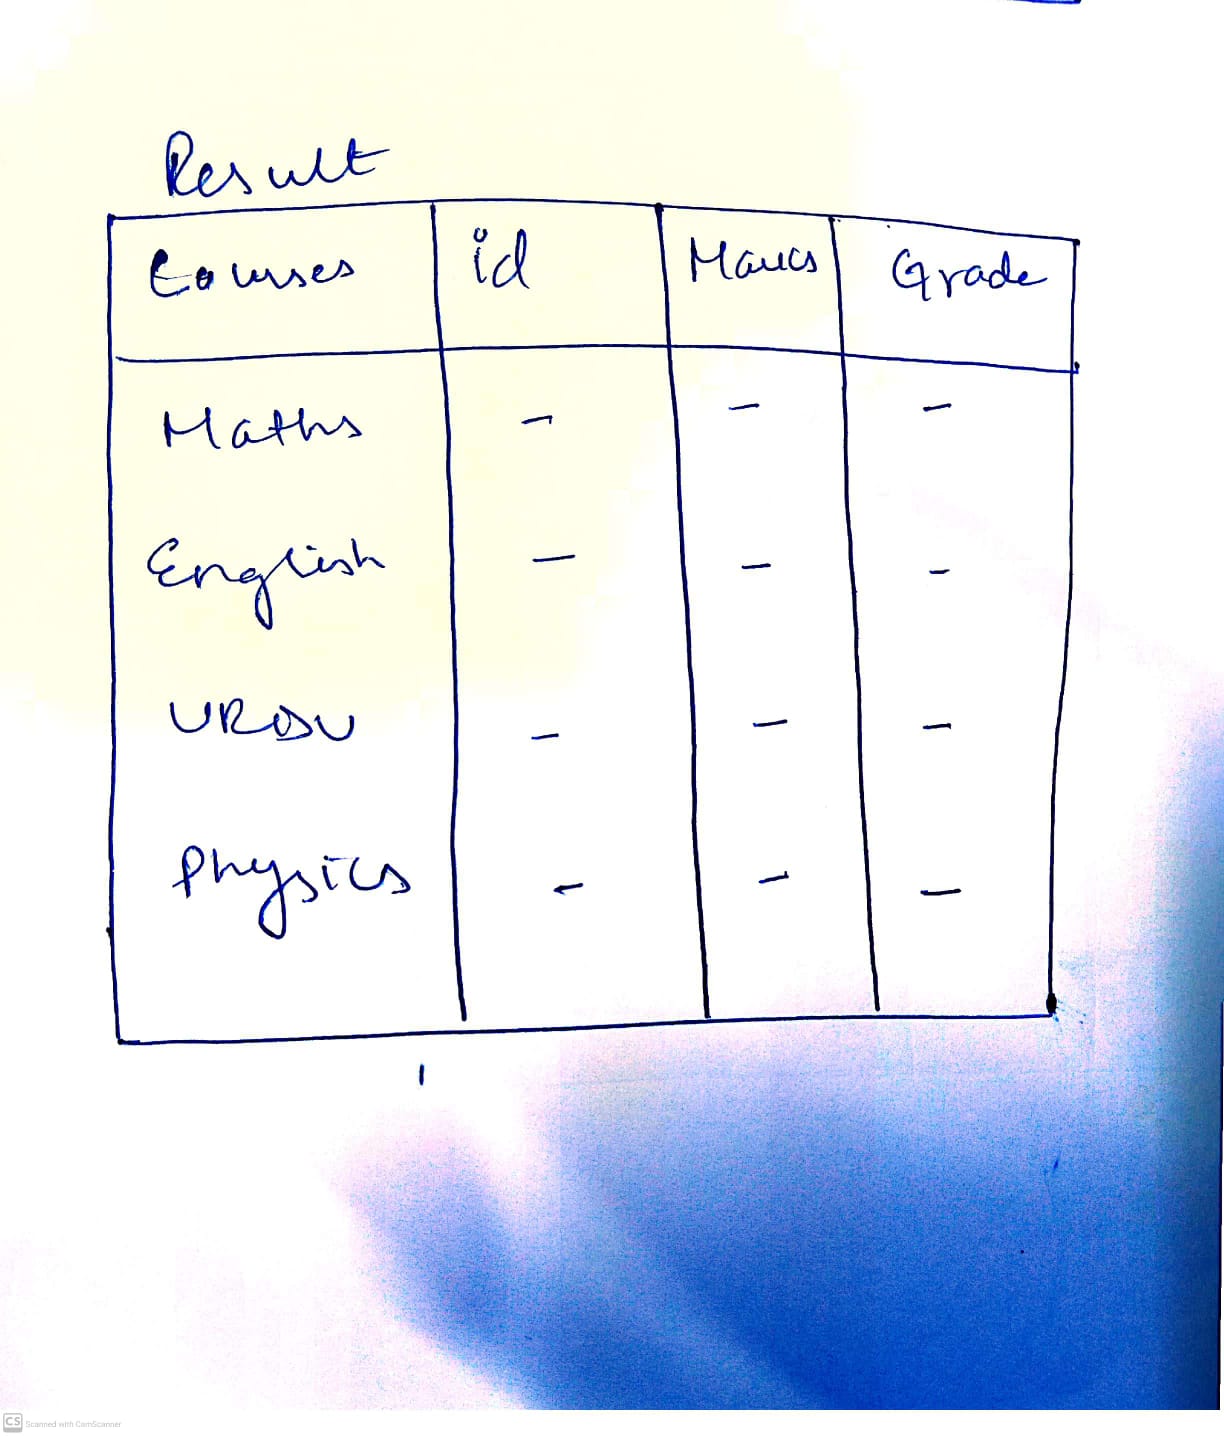 Result
Courses id Marks Grade
Maths - - -
English - - -
URDU - - -
Physics - - -
CS Scanned with CamScanner